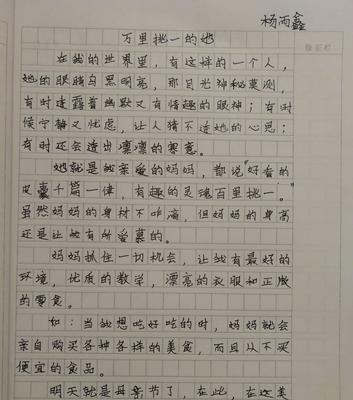 杨雨鑫
万里挑一的她
在我的世界里，有这样的一个人，
她的眼睛乌黑明亮，那目光神秘莫测，
有时透露着幽默又有情趣的眼神；有时
候宁静又忧愁，让人猜不透她的心思；
有时还会透出凛凛的寒意。
她就是我亲爱的妈妈，都说"好看的
皮囊千篇一律，有趣的灵魂百里挑一。"
虽然妈妈的身材不咋滴，但妈妈的身高
还是让我有所爱慕的。
妈妈抓住一切机会，让我有最好的
环境，优质的教学，漂亮的衣服和正版
的零食。
如：当我想吃好吃的时，妈妈就会
亲自购买各种各样的美食，而且从不买
便宜的食品。
明天就是母亲节了，在此，在这美